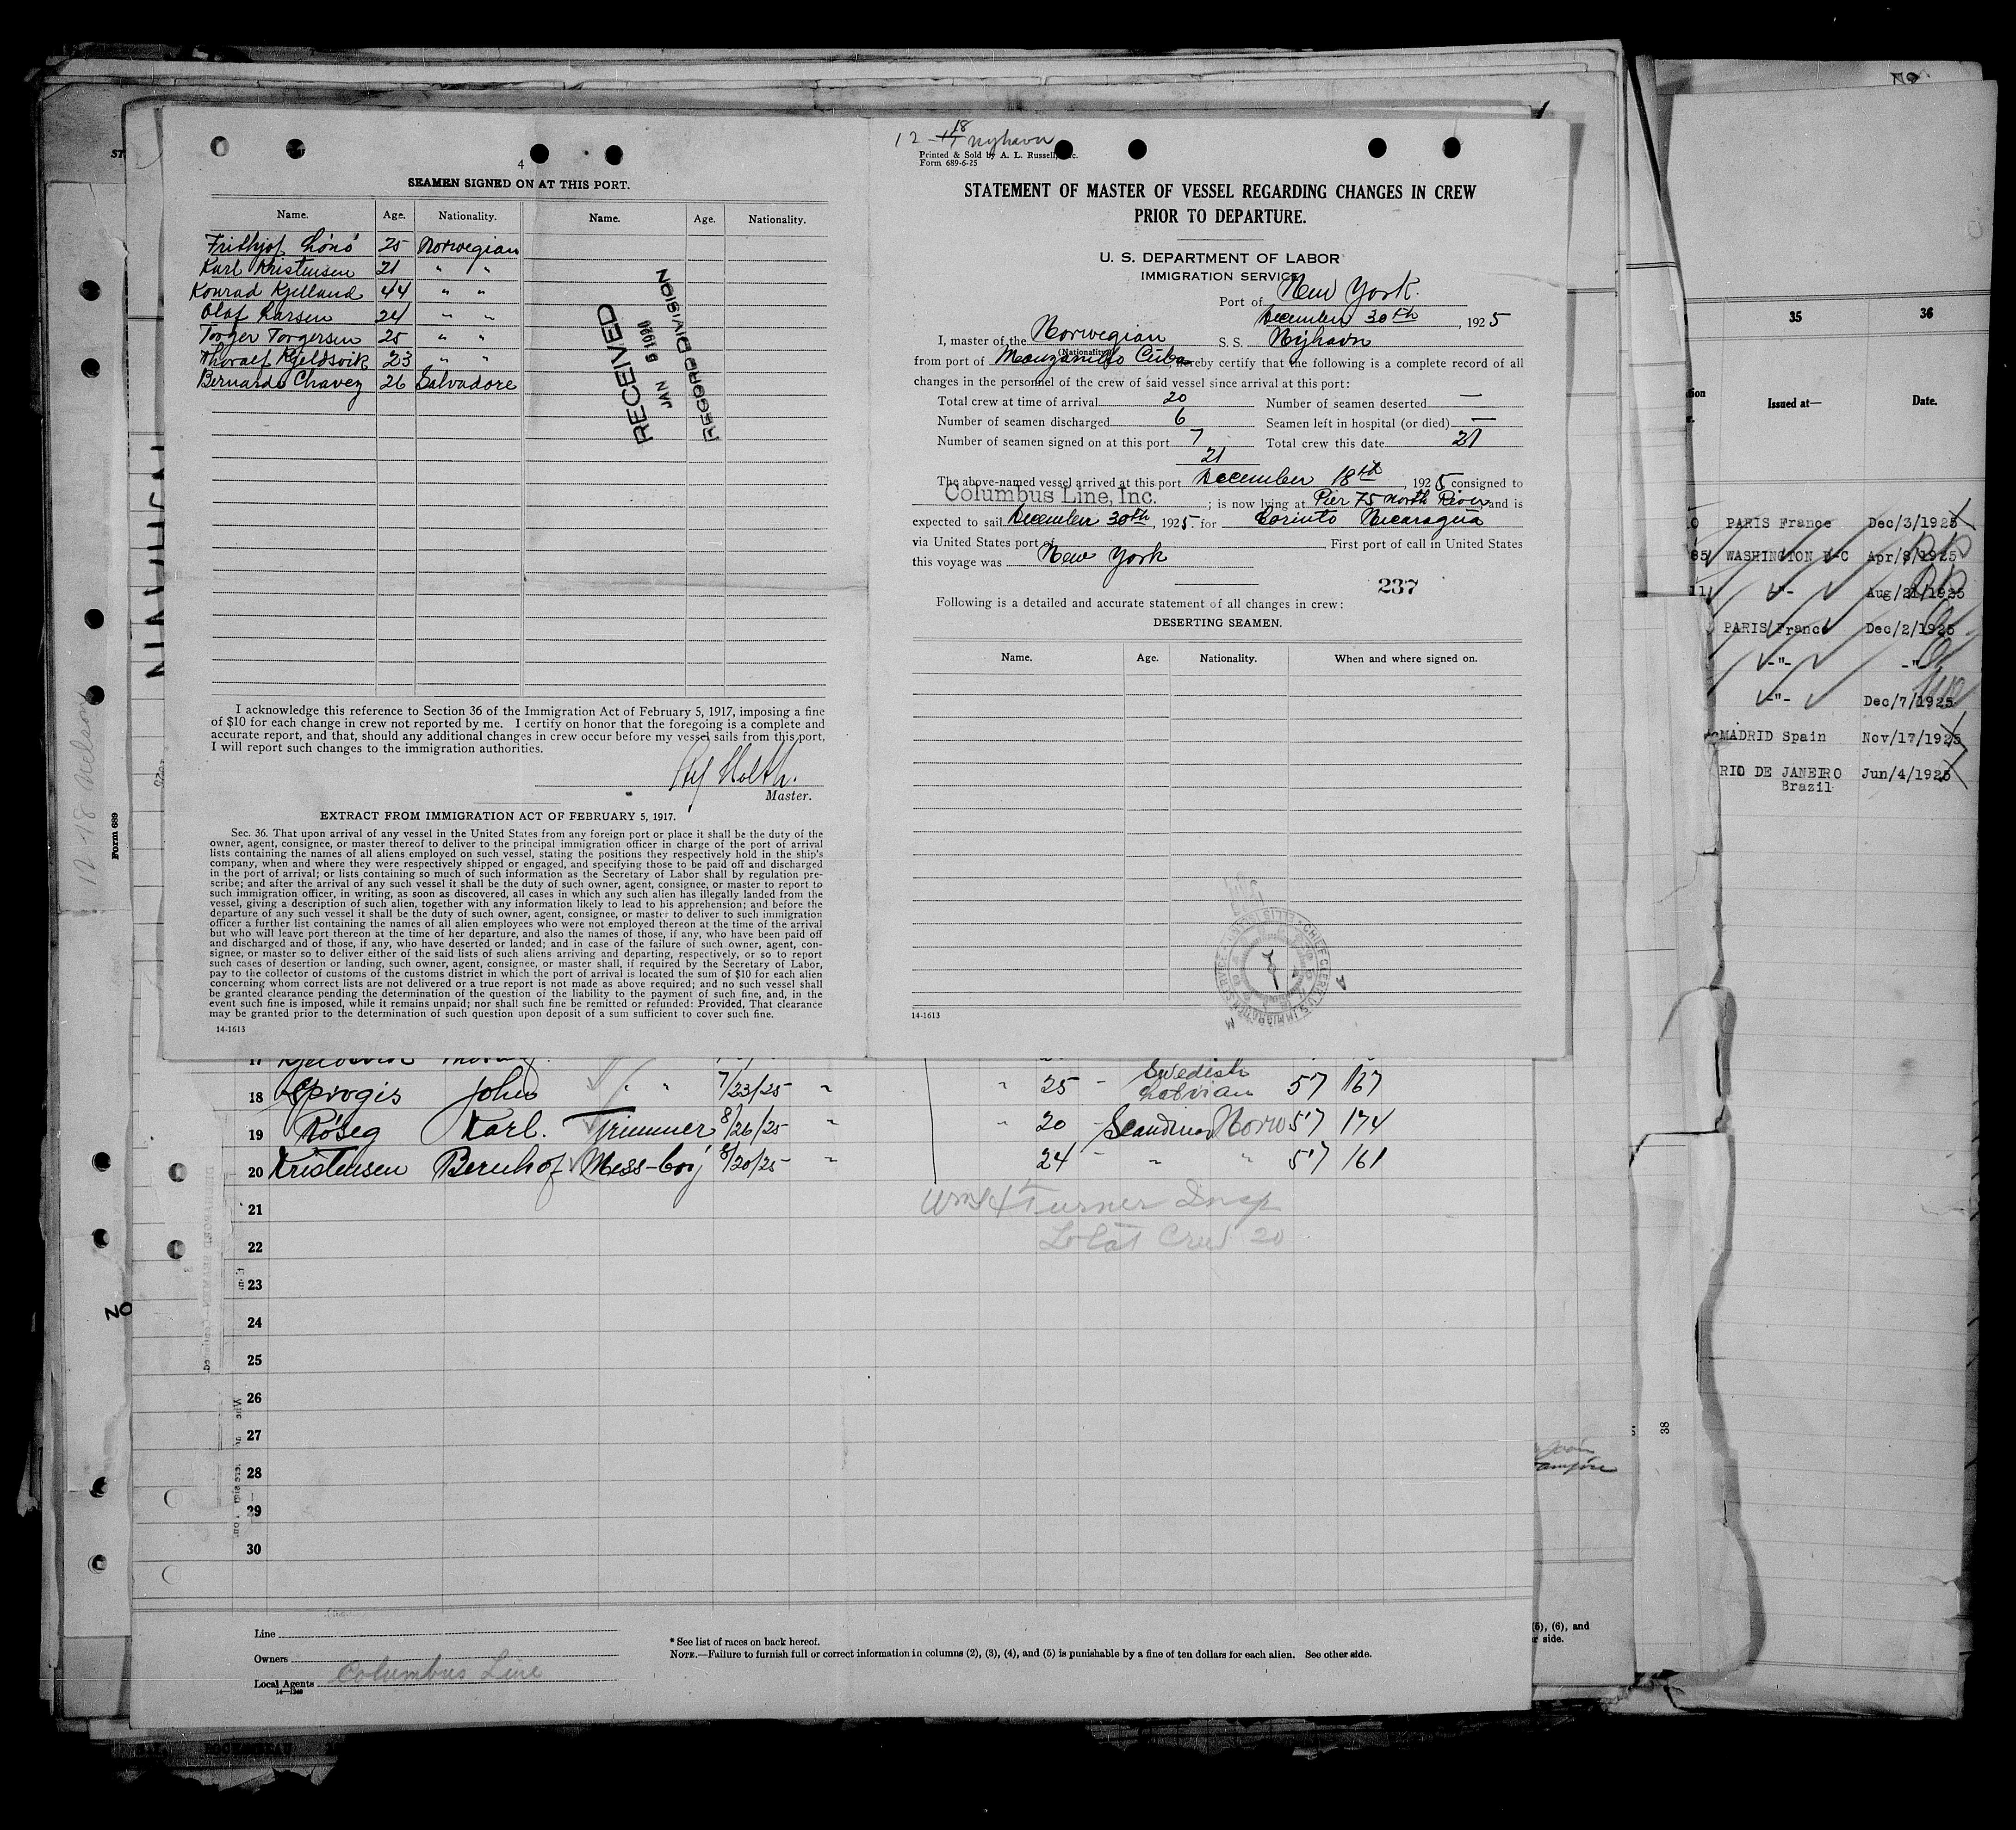 4
SEAMEN SIGNED ON AT THIS PORT.
Name. Age. Nationality. Name. Age. Nationality.
Frithjof Lónó 25 Norwegian
Karl Kristensen 21 " "
Konrad Kjelland 44 " "
Olaf Larsen 24 " "
Torger Torgersen 25 " "
Thoralf Kjeldsvik 23 " "
Bernardo Chavez 26 Salvadore
RECEIVED
JAN 6 1926
RECORD DIVISION
I acknowledge this reference to Section 36 of the Immigration Act of February 5, 1917, imposing a fine
of $10 for each change in crew not reported by me. I certify on honor that the foregoing is a complete and
accurate report, and that, should any additional changes in crew occur before my vessel sails from this port,
I will report such changes to the immigration authorities.
Holth.
Master.
EXTRACT FROM IMMIGRATION ACT OF FEBRUARY 5, 1917.
Sec. 36. That upon arrival of any vessel in the United States from any foreign port or place it shall be the duty of the
owner, agent, consignee, or master thereof to deliver to the principal immigration officer in charge of the port of arrival
lists containing the names of all aliens employed on such vessel, stating the positions they respectively hold in the ship's
company, when and where they were respectively shipped or engaged, and specifying those to be paid off and discharged
in the port of arrival; or lists containing so much of such information as the Secretary of Labor shall by regulation pre-
scribe; and after the arrival of any such vessel it shall be the duty of such owner, agent, consignee, or master to report to
such immigration officer, in writing, as soon as discovered, all cases in which any such alien has illegally landed from the
vessel, giving a description of such alien, together with any information likely to lead to his apprehension; and before the
departure of any such vessel it shall be the duty of such owner, agent, consignee, or master to deliver to such immigration
officer a further list containing the names of all alien employees who were not employed thereon at the time of the arrival
but who will leave port thereon at the time of her departure, and also the names of those, if any, who have been paid off
and discharged and of those, if any, who have deserted or landed; and in case of the failure of such owner, agent, con-
signee, or master so to deliver either of the said lists of such aliens arriving and departing, respectively, or so to report
such cases of desertion or landing, such owner, agent, consignee, or master, shall, if required by the Secretary of Labor,
pay to the collector of customs of the customs district in which the port of arrival is located the sum of $10 for each alien
concerning whom correct lists are not delivered or a true report is not made as above required; and no such vessel shall
be granted clearance pending the determination of the question of the liability to the payment of such fine, and, in the
event such fine is imposed, while it remains unpaid; nor shall such fine be remitted or refunded: Provided, That clearance
may be granted prior to the determination of such question upon deposit of a sum sufficient to cover such fine.
14-1613
12-18 Nyhavn
Printed & Sold by A. L. Russell, Inc.
Form 689-6-25
STATEMENT OF MASTER OF VESSEL REGARDING CHANGES IN CREW
PRIOR TO DEPARTURE.
U. S. DEPARTMENT OF LABOR
IMMIGRATION SERVICE
Port of New York.
December 30th, 1925
I, master of the Norwegian S. S. Nyhavn
(Nationality)
from port of Manzanillo Cuba, hereby certify that the following is a complete record of all
changes in the personnel of the crew of said vessel since arrival at this port:
Total crew at time of arrival 20 Number of seamen deserted —
Number of seamen discharged 6 Seamen left in hospital (or died) —
Number of seamen signed on at this port 7 Total crew this date 21
21
The above-named vessel arrived at this port December 18th, 1925 consigned to
Columbus Line, Inc. ; is now lying at Pier 75 North River and is
expected to sail December 30th, 1925. for Corinto Nicaragua
via United States port of First port of call in United States
this voyage was New York
237
Following is a detailed and accurate statement of all changes in crew:
DESERTING SEAMEN.
Name. Age. Nationality. When and where signed on.
CHIEF CLERK U.S. IMMIGRATION SERVICE
14-1613
17
18 Sprogis John " " 7/23/25 " " 25 - Swedish Latvian 5'7 167
19 Róseg Karl. Trimmer 8/26/25 " " 20 - Scandinav Norw 5'7 174
20 Kristensen Bernhof Mess-boy 8/20/25 " 24 - " " 5'7 161
21
Turner Insp
22
Total Crew 20
23
24
25
26
27
28
29
30
Line
Owners
Local Agents Columbus Line
14—1240
* See list of races on back hereof.
NOTE.—Failure to furnish full or correct information in columns (2), (3), (4), and (5) is punishable by a fine of ten dollars for each alien. See other side.
12-18 Nelson
Form 689
35 36
Issued at— Date.
PARIS France Dec/3/1925
85 WASHINGTON D-C Apr/8/1925
11 -"- Aug/21/1925
PARIS France Dec/2/1925
-"- -"-
-"- Dec/7/1925
MADRID Spain Nov/17/1925
RIO DE JANEIRO Jun/4/1925
Brazil
38
(5), (6), and
side.